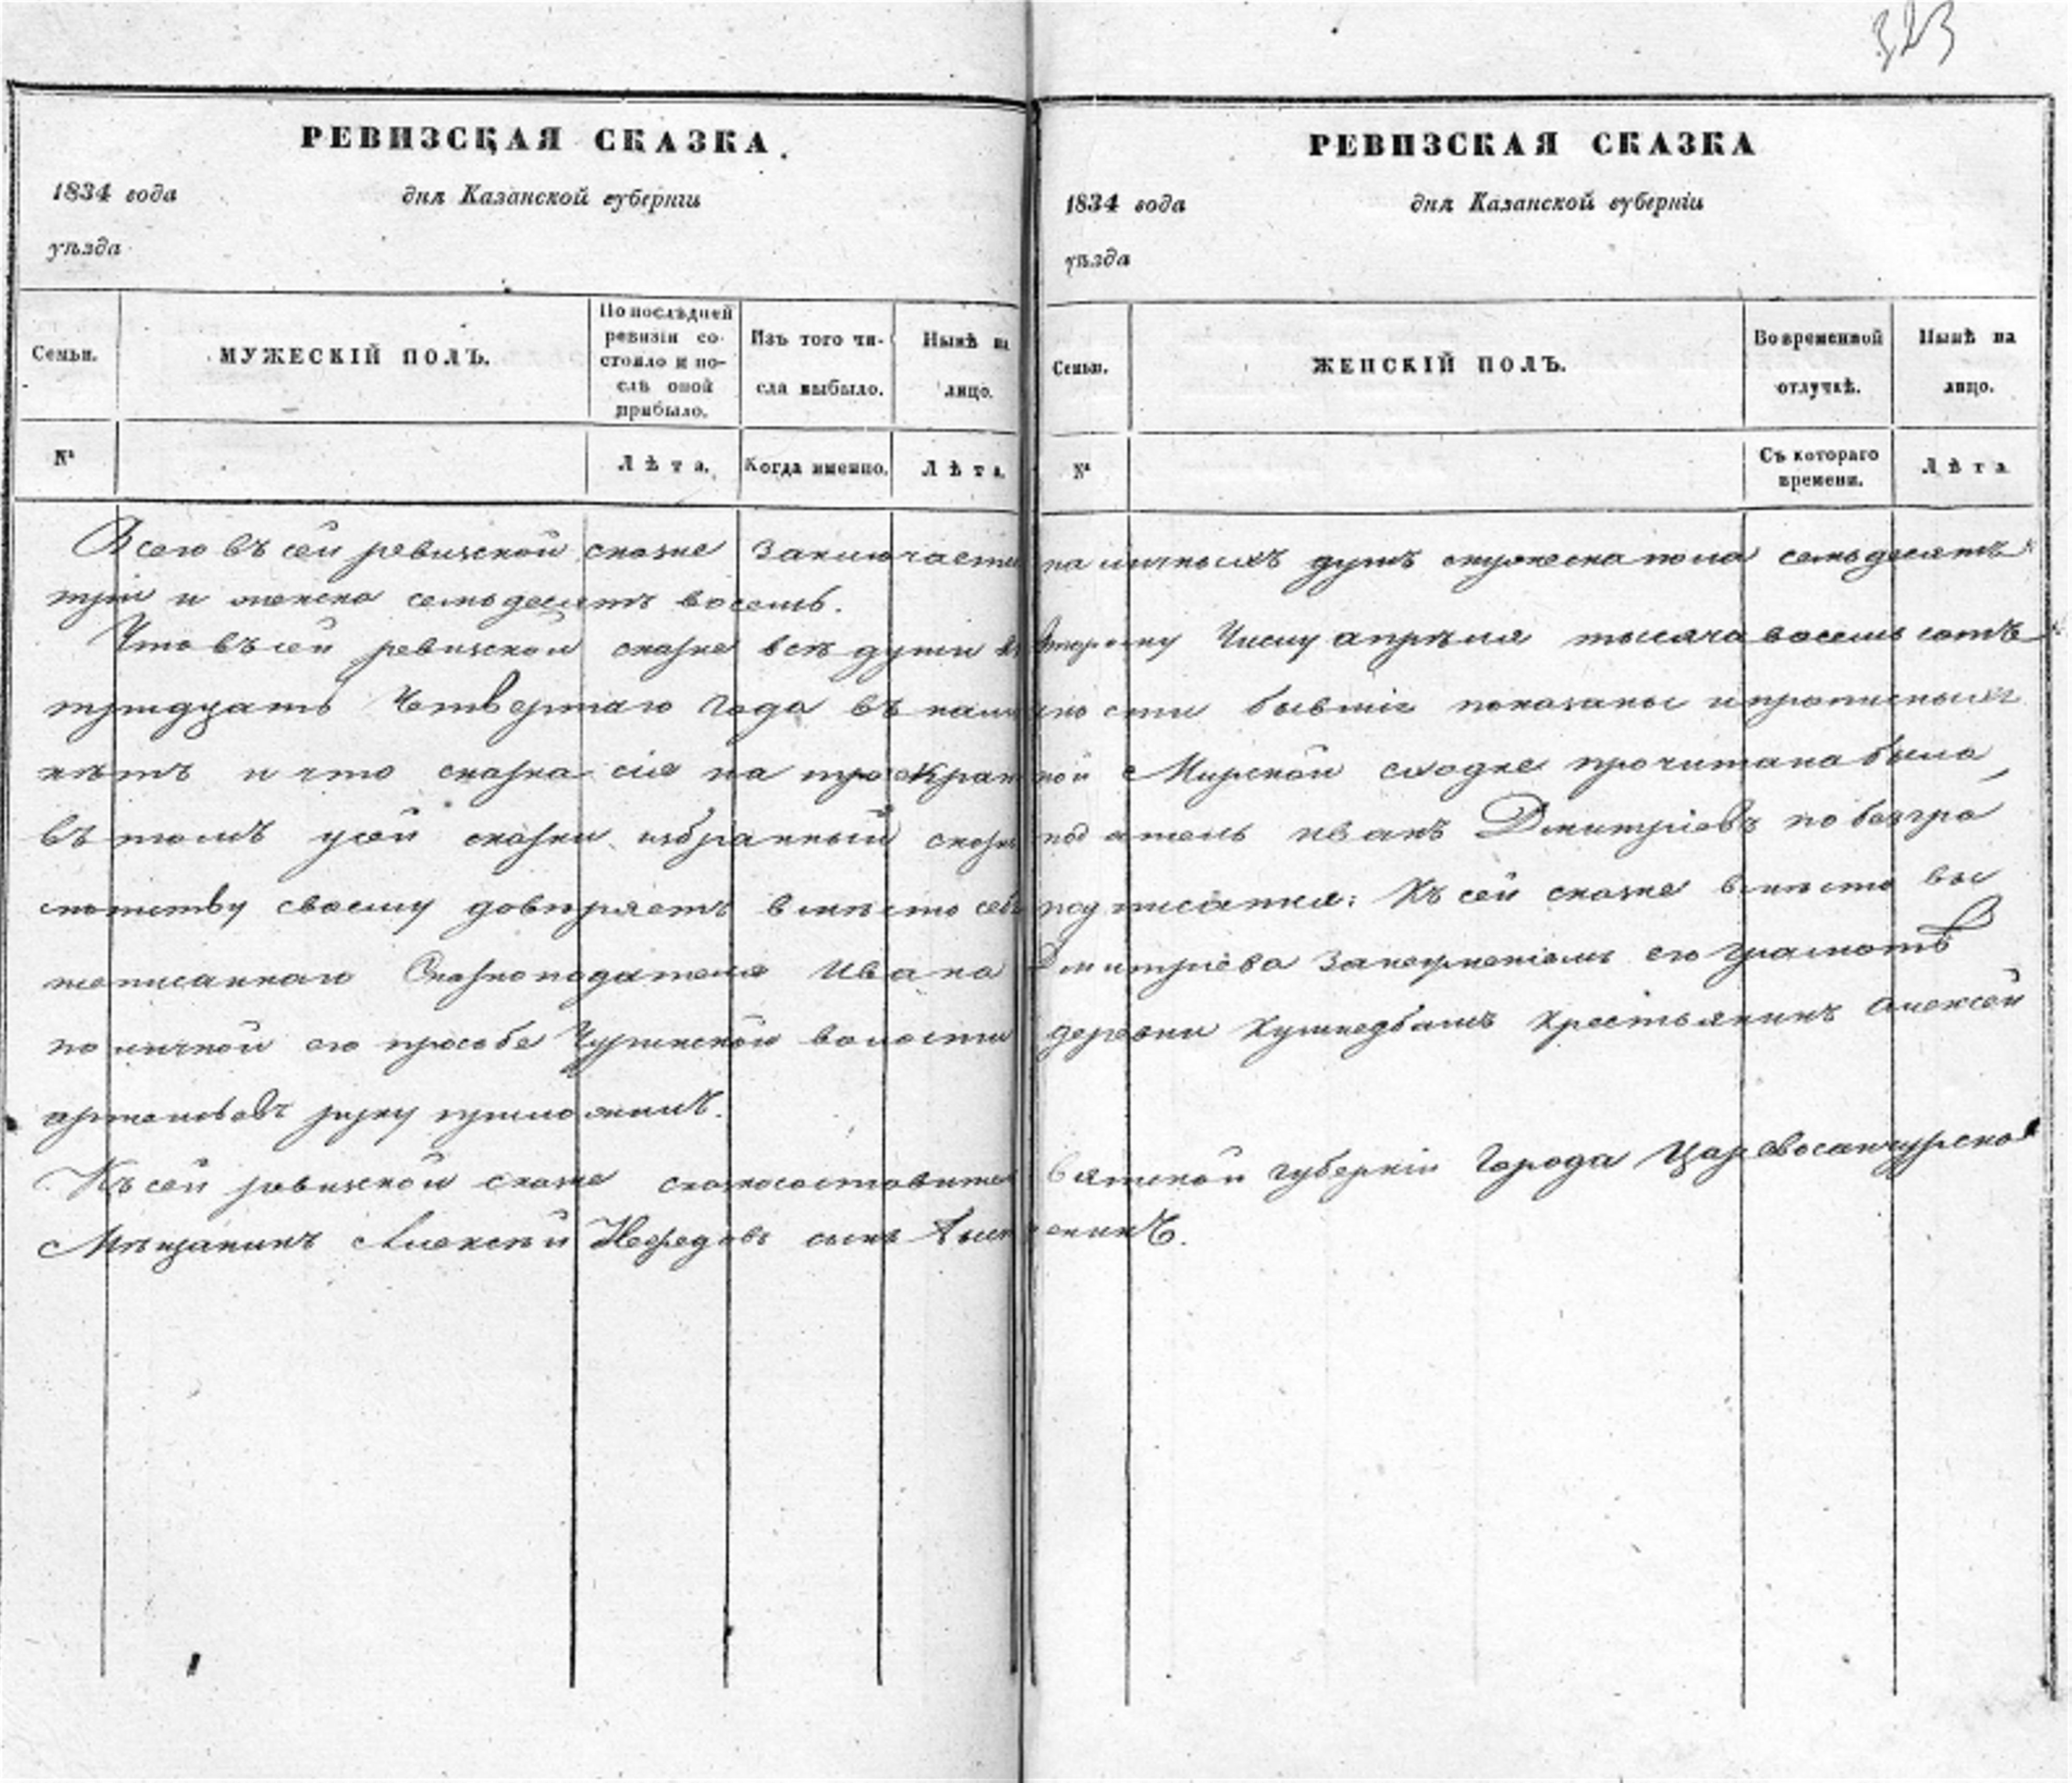 323
РЕВИЗСКАЯ СКАЗКА.
1834 года дня Казанской губернiи
уѣзда
Семьи.
МУЖЕСКIЙ ПОЛЪ.
По послѣдней
ревизiи со-
стояло и по-
слѣ оной
прибыло.
Изъ того чи-
сла выбыло.
Нынѣ на
лицо.
№
Лѣта.
Когда именно.
Лѣта.
РЕВИЗСКАЯ СКАЗКА
1834 года дня Казанской губернiи
уѣзда
Семьи.
ЖЕНСКIЙ ПОЛЪ.
Во временной
отлучкѣ.
Нынѣ на
лицо.
№
Съ котораго
времени.
Лѣта
Всего въ сей ревизской сказке заключается наличныхъ душъ мужеска пола семьдесятъ
три и женска семьдесятъ восемь.
Что въ сей ревизской сказке всѣ души второму Числу апрѣля тысяча восемь сотъ
тридцать Четвертаго Года въ наличности бывшiе показаны и прописныхъ
нѣтъ и что сказка сiя на троекратной Мирской сходке прочитана была
въ томъ у сей сказки избранный сказкоподатель иванъ Дмитрiевъ по безгра
мотству своему довѣряетъ вмѣсто себя подписатся: Къ сей сказке вмѣсто вы
шеписаннаго Сказкоподателя Ивана Дмитрiева за неумениемъ его Грамотѣ
по личной его прозбе волости деревни Крестьянинъ Алексей
руку приложилъ.
Къ сей ревизской сказке сказкосоставитель Вятской губернiи Города Царевосанчурска
Мѣщанинъ Алексѣй Нефедовъ сынъ